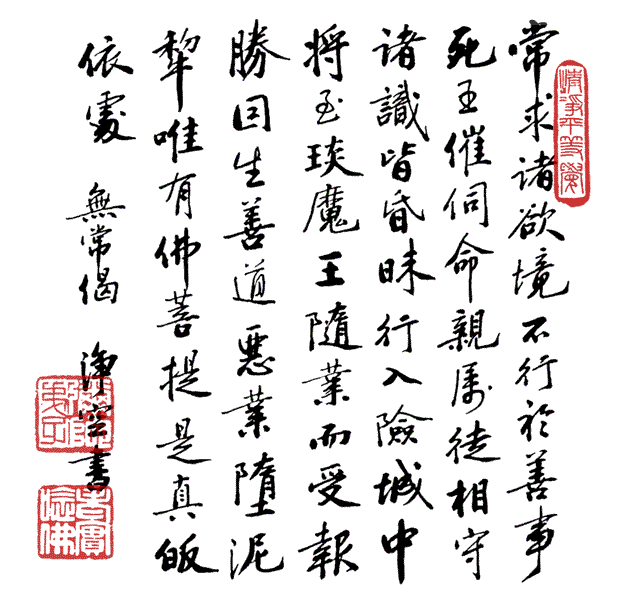 清淨平等覺
常求諸欲境不行於善事
死王催伺命親属徒相守
諸識皆昏昧行入險城中
將至琰魔王隨業而受報
勝因生善道惡業墮泥
犂唯有佛菩提是真皈
依處 無常偈 淨空書
老實念佛